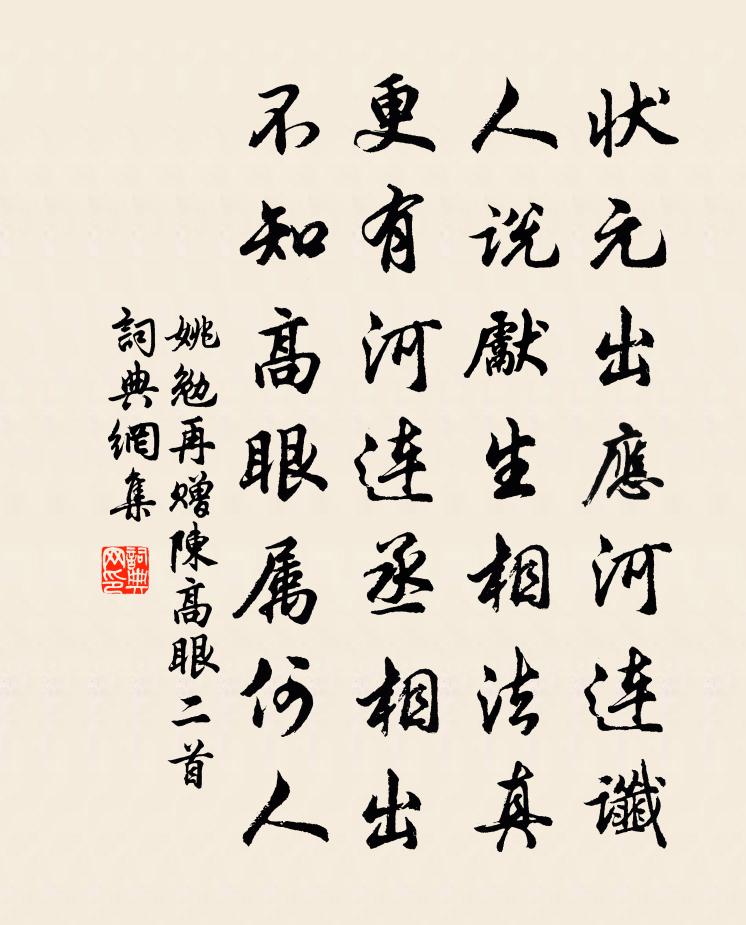 状元出應河连讖
人说獻生相法真
更有河连丞相出
不知高眼属何人
姚勉再赠陳高眼二首
詞典網集
詞典网印